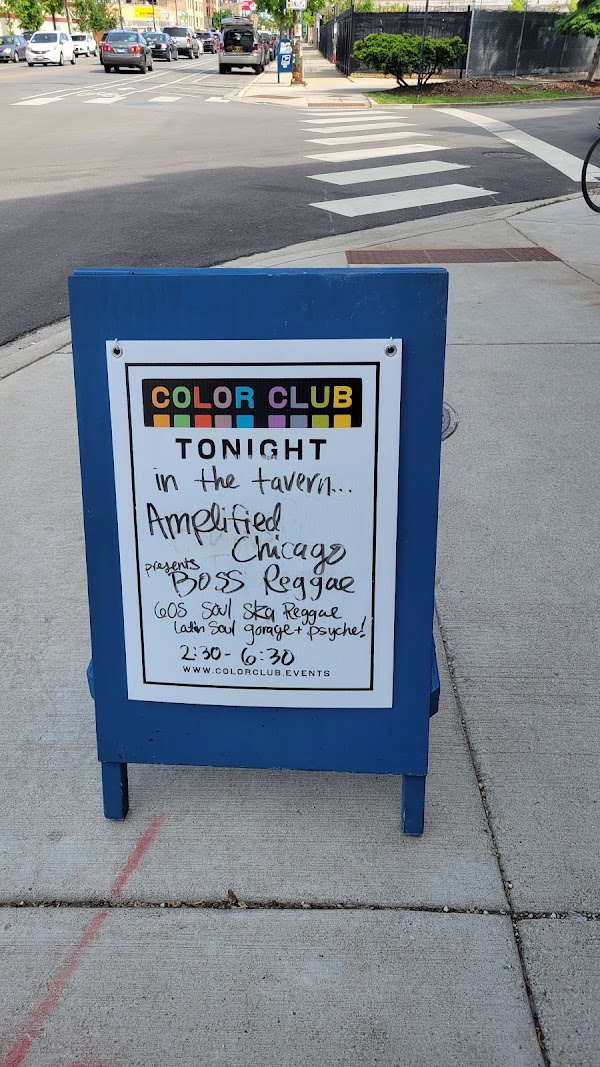 COLOR CLUB
TONIGHT
in the tavern...
Amplified
Chicago
presents
Boss Reggae
60s Soul Ska Reggae
Latin Soul garage + psyche!
2:30 - 6:30
WWW.COLORCLUB.EVENTS